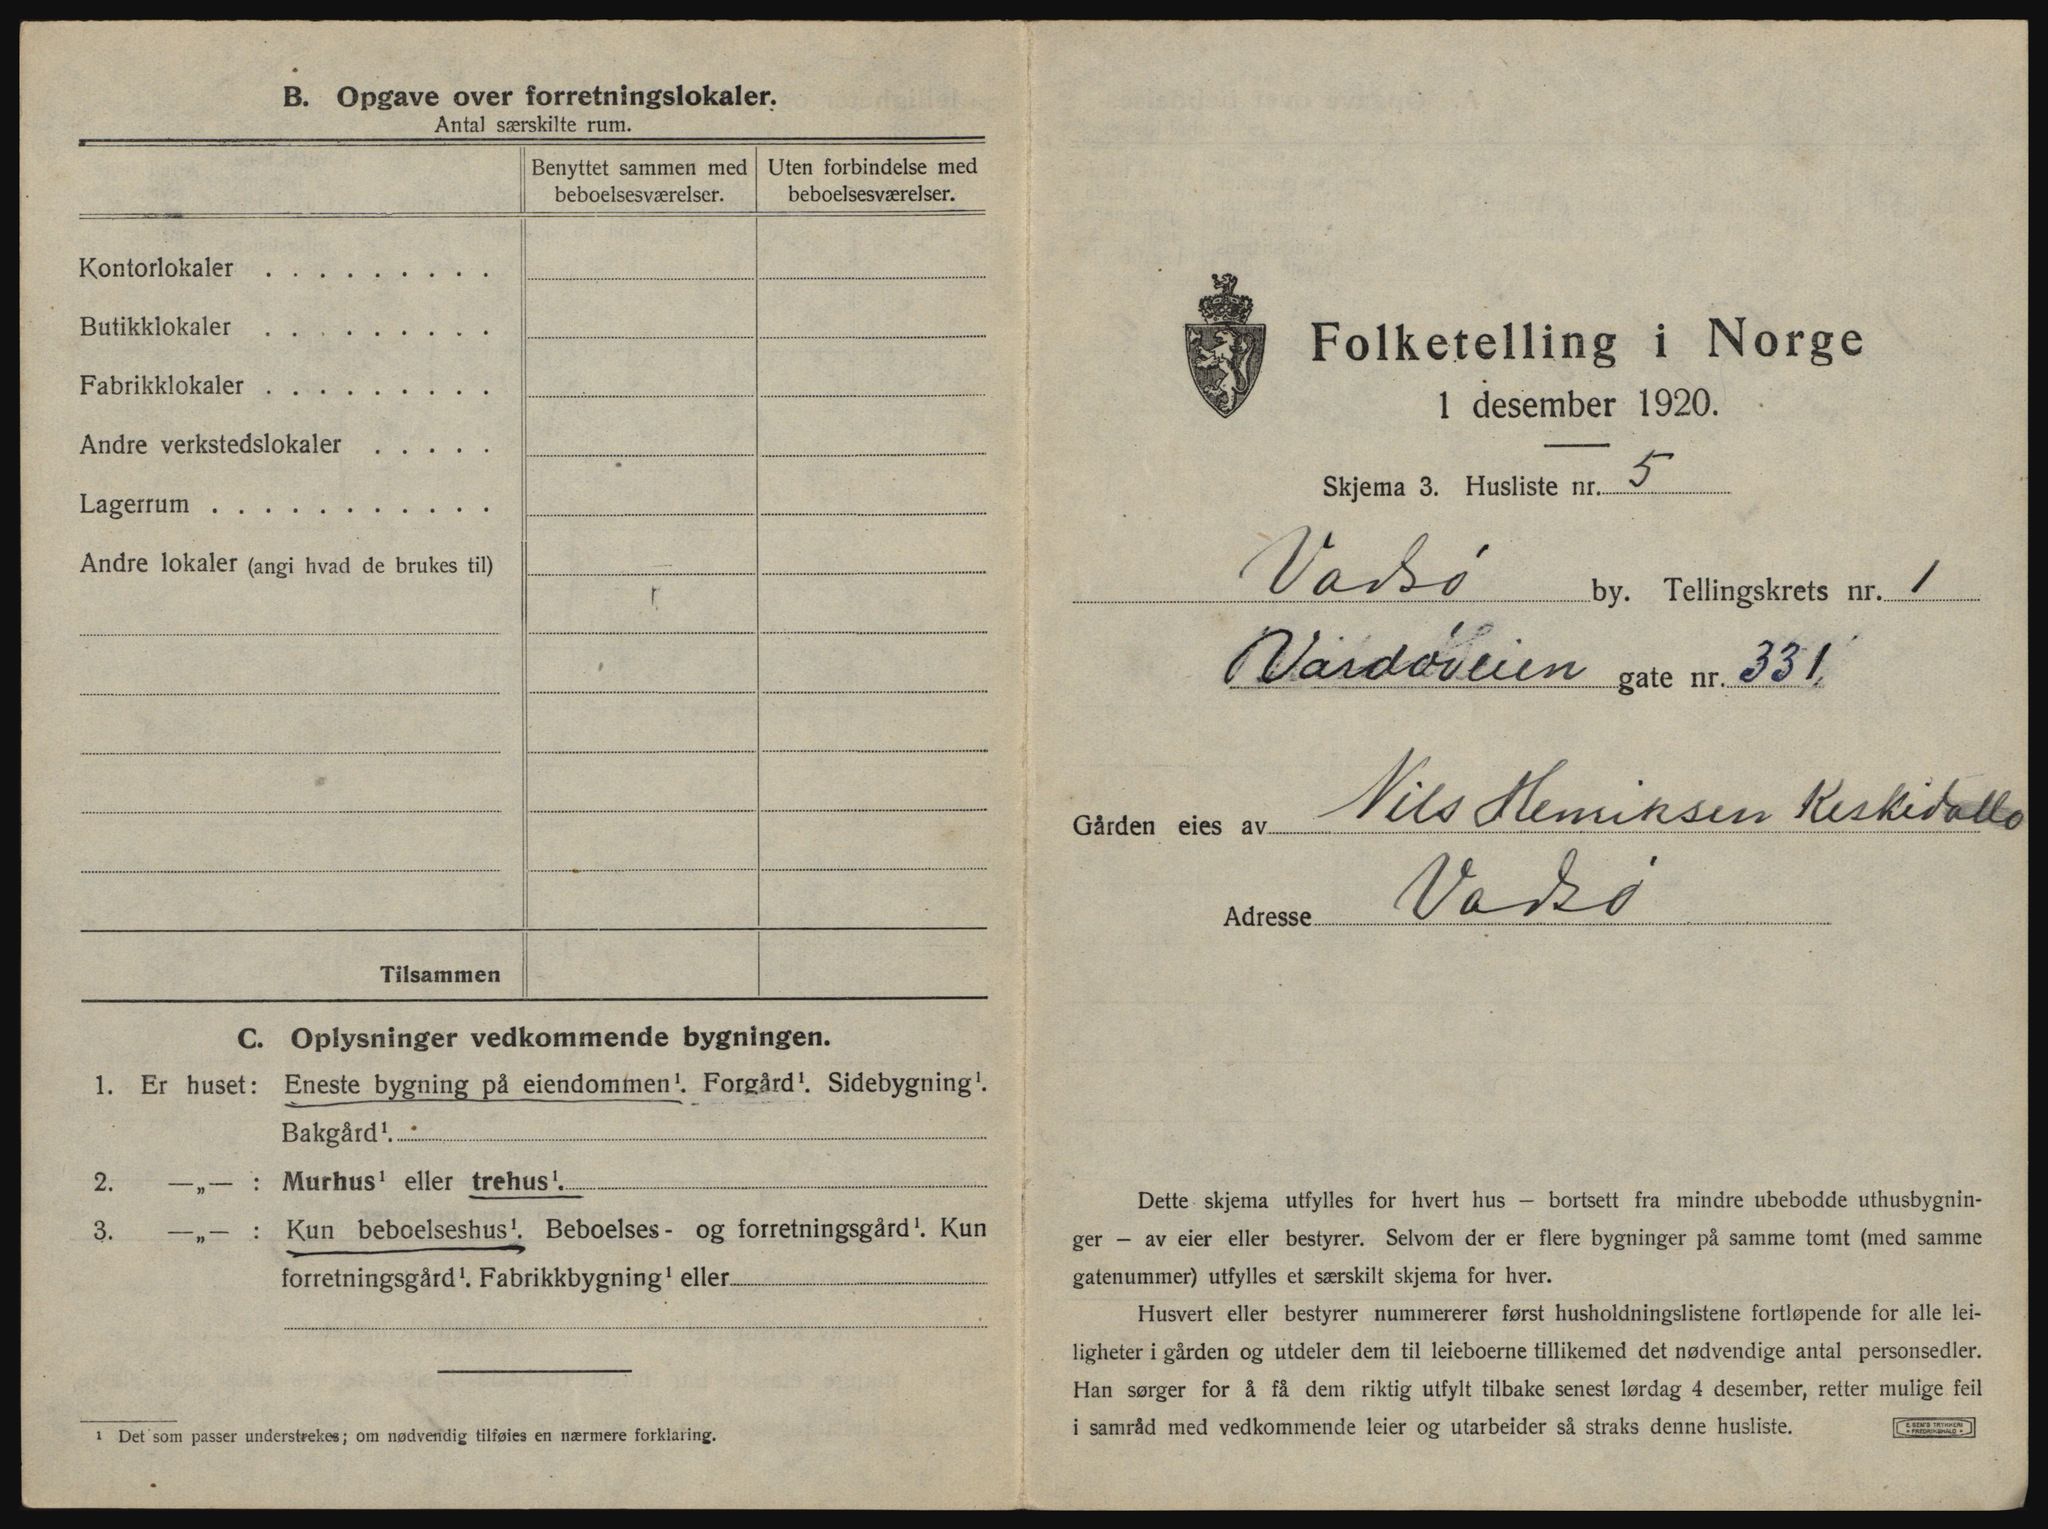 B. Opgave over forretningslokaler.
Antal særskilte rum.
Benyttet sammen med beboelsesværelser.
Uten forbindelse med beboelsesværelser.
Kontorlokaler . . . . . . . . .
Butikklokaler . . . . . . . . .
Fabrikklokaler . . . . . . . . .
Andre verkstedslokaler . . . . .
Lagerrum . . . . . . . . . . .
Andre lokaler (angi hvad de brukes til)
Tilsammen
C. Oplysninger vedkommende bygningen.
1. Er huset: Eneste bygning på eiendommen¹. Forgård¹. Sidebygning¹.
Bakgård¹.
2. —„— : Murhus¹ eller trehus¹.
3. —„— : Kun beboelseshus¹. Beboelses- og forretningsgård¹. Kun
forretningsgård¹. Fabrikkbygning¹ eller
¹ Det som passer understrekes; om nødvendig tilføies en nærmere forklaring.
Folketelling i Norge
1 desember 1920.
Skjema 3. Husliste nr. 5
Vadsø by. Tellingskrets nr. 1
Vardøveien gate nr. 331
Gården eies av Nils Henriksen Keskidallo
Adresse Vadsø
Dette skjema utfylles for hvert hus – bortsett fra mindre ubebodde uthusbygnin-
ger – av eier eller bestyrer. Selvom der er flere bygninger på samme tomt (med samme
gatenummer) utfylles et særskilt skjema for hver.
Husvert eller bestyrer nummererer først husholdningslistene fortløpende for alle lei-
ligheter i gården og utdeler dem til leieboerne tillikemed det nødvendige antal personsedler.
Han sørger for å få dem riktig utfylt tilbake senest lørdag 4 desember, retter mulige feil
i samråd med vedkommende leier og utarbeider så straks denne husliste.
E. SEM'S TRYKKERI
FREDRIKSHALD